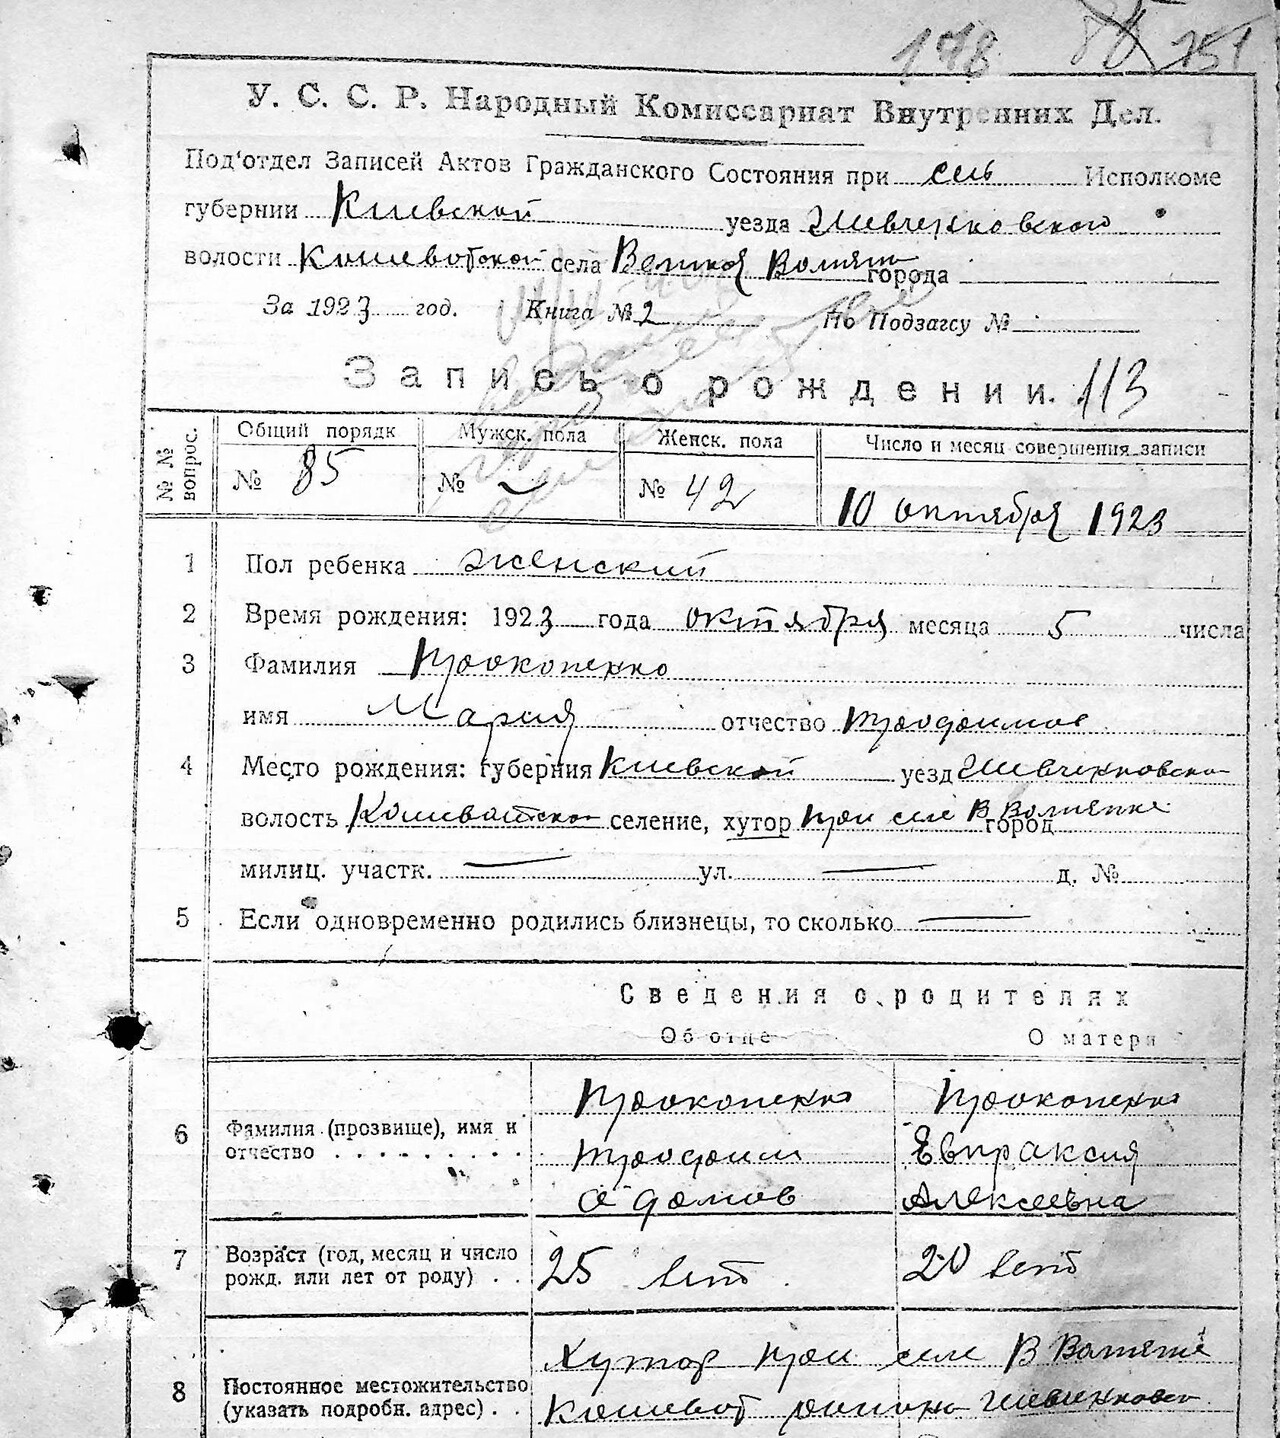 178 757
У. С. С. Р. Народный Комиссариат Внутренних Дел.
Под'отдел Записей Актов Гражданского Состояния при сель Исполкоме
губернии Киевской уезда Шевченковского
волости Кошеватской села Великая города
За 1923 год. Книга № 2 По Подзагсу №
Запись о рождении. 113
№ № вопрос. Общий порядк Мужск. пола Женск. пола Число и месяц совершения записи
№ 85 № — № 42 10 октября 1923
1 Пол ребенка женский
2 Время рождения: 1923 года октября месяца 5 числа
3 Фамилия Прокопенко
имя Мария отчество Трофимов
4 Место рождения: губерния Киевской уезд Шевченковско
волость селение, хутор при селе В город
милиц. участк. — ул. — д. №
5 Если одновременно родились близнецы, то сколько —
Сведения о родителях
Об отце О матери
6 Фамилия (прозвище), имя и отчество Прокопенко Прокопенко
Трофим Евпраксия
Алексеевна
7 Возраст (год, месяц и число рожд. или лет от роду) 25 лет 20 лет
Хутор при селе В
8 Постоянное местожительство (указать подробн. адрес)